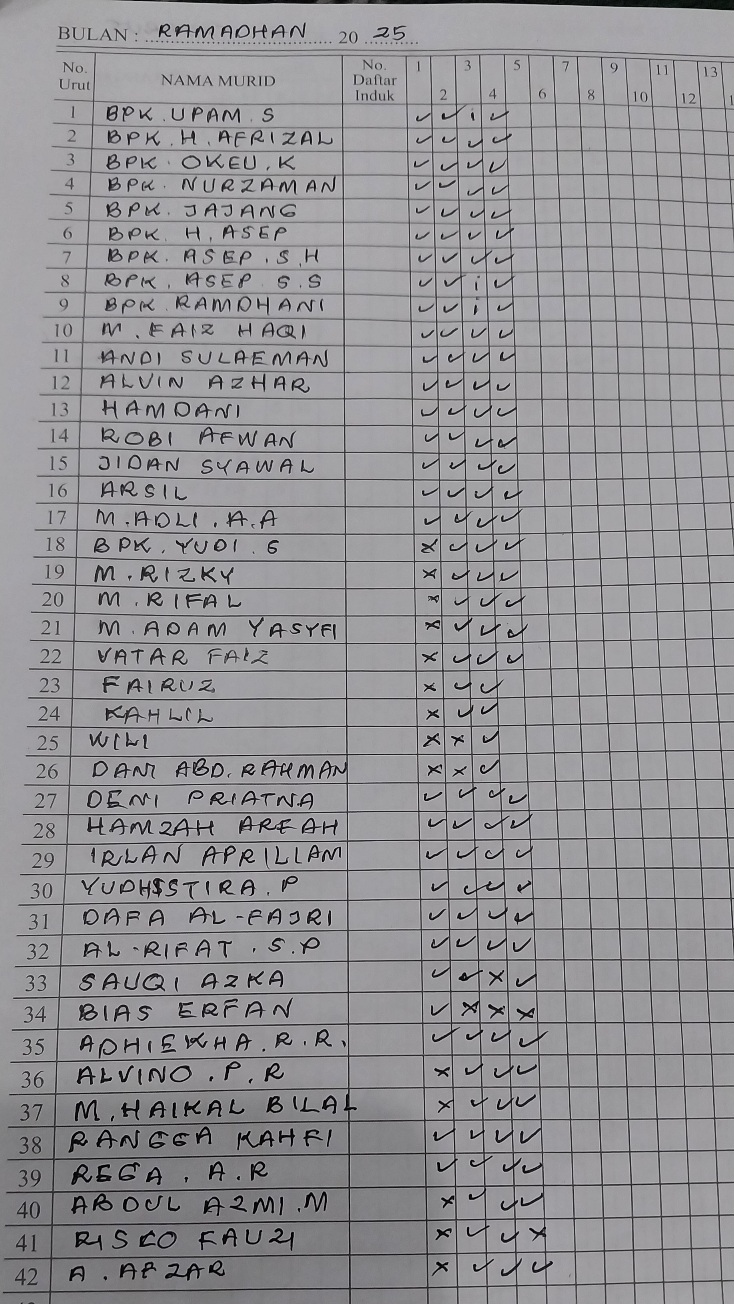 BULAN : RAMADHAN 20 25
No. Urut NAMA MURID No. Daftar Induk 1 2 3 4 5 6 7 8 9 10 11 12 13
1 BPK. UPAM. S ✓ ✓ i ✓
2 BPK. H. AFRIZAL ✓ ✓ ✓ ✓
3 BPK. OKEU. K ✓ ✓ ✓ ✓
4 BPK. NURZAMAN ✓ ✓ ✓ ✓
5 BPK. JAJANG ✓ ✓ ✓ ✓
6 BPK. H. ASEP ✓ ✓ ✓ ✓
7 BPK. ASEP. S.H ✓ ✓ ✓ ✓
8 BPK. ASEP S.S ✓ ✓ i ✓
9 BPK RAMDHANI ✓ ✓ i ✓
10 M. FAIZ HAQI ✓ ✓ ✓ ✓
11 ANDI SULAEMAN ✓ ✓ ✓ ✓
12 ALVIN AZHAR ✓ ✓ ✓ ✓
13 HAMDANI ✓ ✓ ✓ ✓
14 ROBI AFWAN ✓ ✓ ✓ ✓
15 JIDAN SYAWAL ✓ ✓ ✓ ✓
16 ARSIL ✓ ✓ ✓ ✓
17 M. ADLI. A.A ✓ ✓ ✓ ✓
18 BPK. YUDI. G x ✓ ✓ ✓
19 M. RIZKY x ✓ ✓ ✓
20 M. RIFAL x ✓ ✓ ✓
21 M. ADAM YASYFI x ✓ ✓ ✓
22 VATAR FAIZ x ✓ ✓ ✓
23 FAIRUZ x ✓ ✓
24 KAHLIL x ✓ ✓
25 WILI x x ✓
26 DANI ABD. RAHMAN x x ✓
27 DENI PRIATNA ✓ ✓ ✓ ✓
28 HAMZAH ARFAH ✓ ✓ ✓ ✓
29 IRLAN APRILLAM ✓ ✓ ✓ ✓
30 YUDHISTIRA. P ✓ ✓ ✓ ✓
31 DAFA AL-FAJRI ✓ ✓ ✓ ✓
32 AL-RIFAT. S.P ✓ ✓ ✓ ✓
33 SAUQI AZKA ✓ ✓ x ✓
34 BIAS ERFAN ✓ x x x
35 ADHIEKHA. R. R. ✓ ✓ ✓ ✓
36 ALVINO. P. R x ✓ ✓ ✓
37 M. HAIKAL BILAL x ✓ ✓ ✓
38 RANGGA KAHFI ✓ ✓ ✓ ✓
39 REGA. A. R ✓ ✓ ✓ ✓
40 ABDUL AZMI. M x ✓ ✓ ✓
41 FAUZI x ✓ ✓ x
42 A. AFZAR x ✓ ✓ ✓